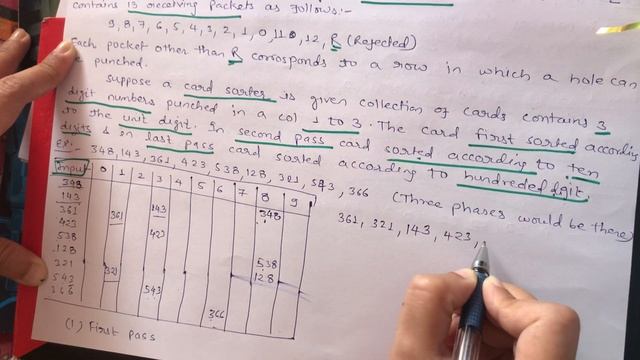 contains 13 receiving packets as follows:-
9, 8, 7, 6, 5, 4, 3, 2, 1, 0, 11, 12, R (Rejected)
Each pocket other than R corrosponds to a row in which a hole can
be punched.
Suppose a card sorter is given collection of cards contains 3
digit numbers punched in a col 1 to 3. The card first sorted according
to the unit digit. In second pass card sorted according to ten
digits & in last pass card sorted according to hundreded digit.
Ex:- 348, 143, 361, 423, 538, 128, 321, 543, 366 (Three phases would be there)
Input 0 1 2 3 4 5 6 7 8 9
348 348
143 143
361 361
423 423
538 538
128 128
321 321
543 543
366 366
(1) First pass
361, 321, 143, 423,